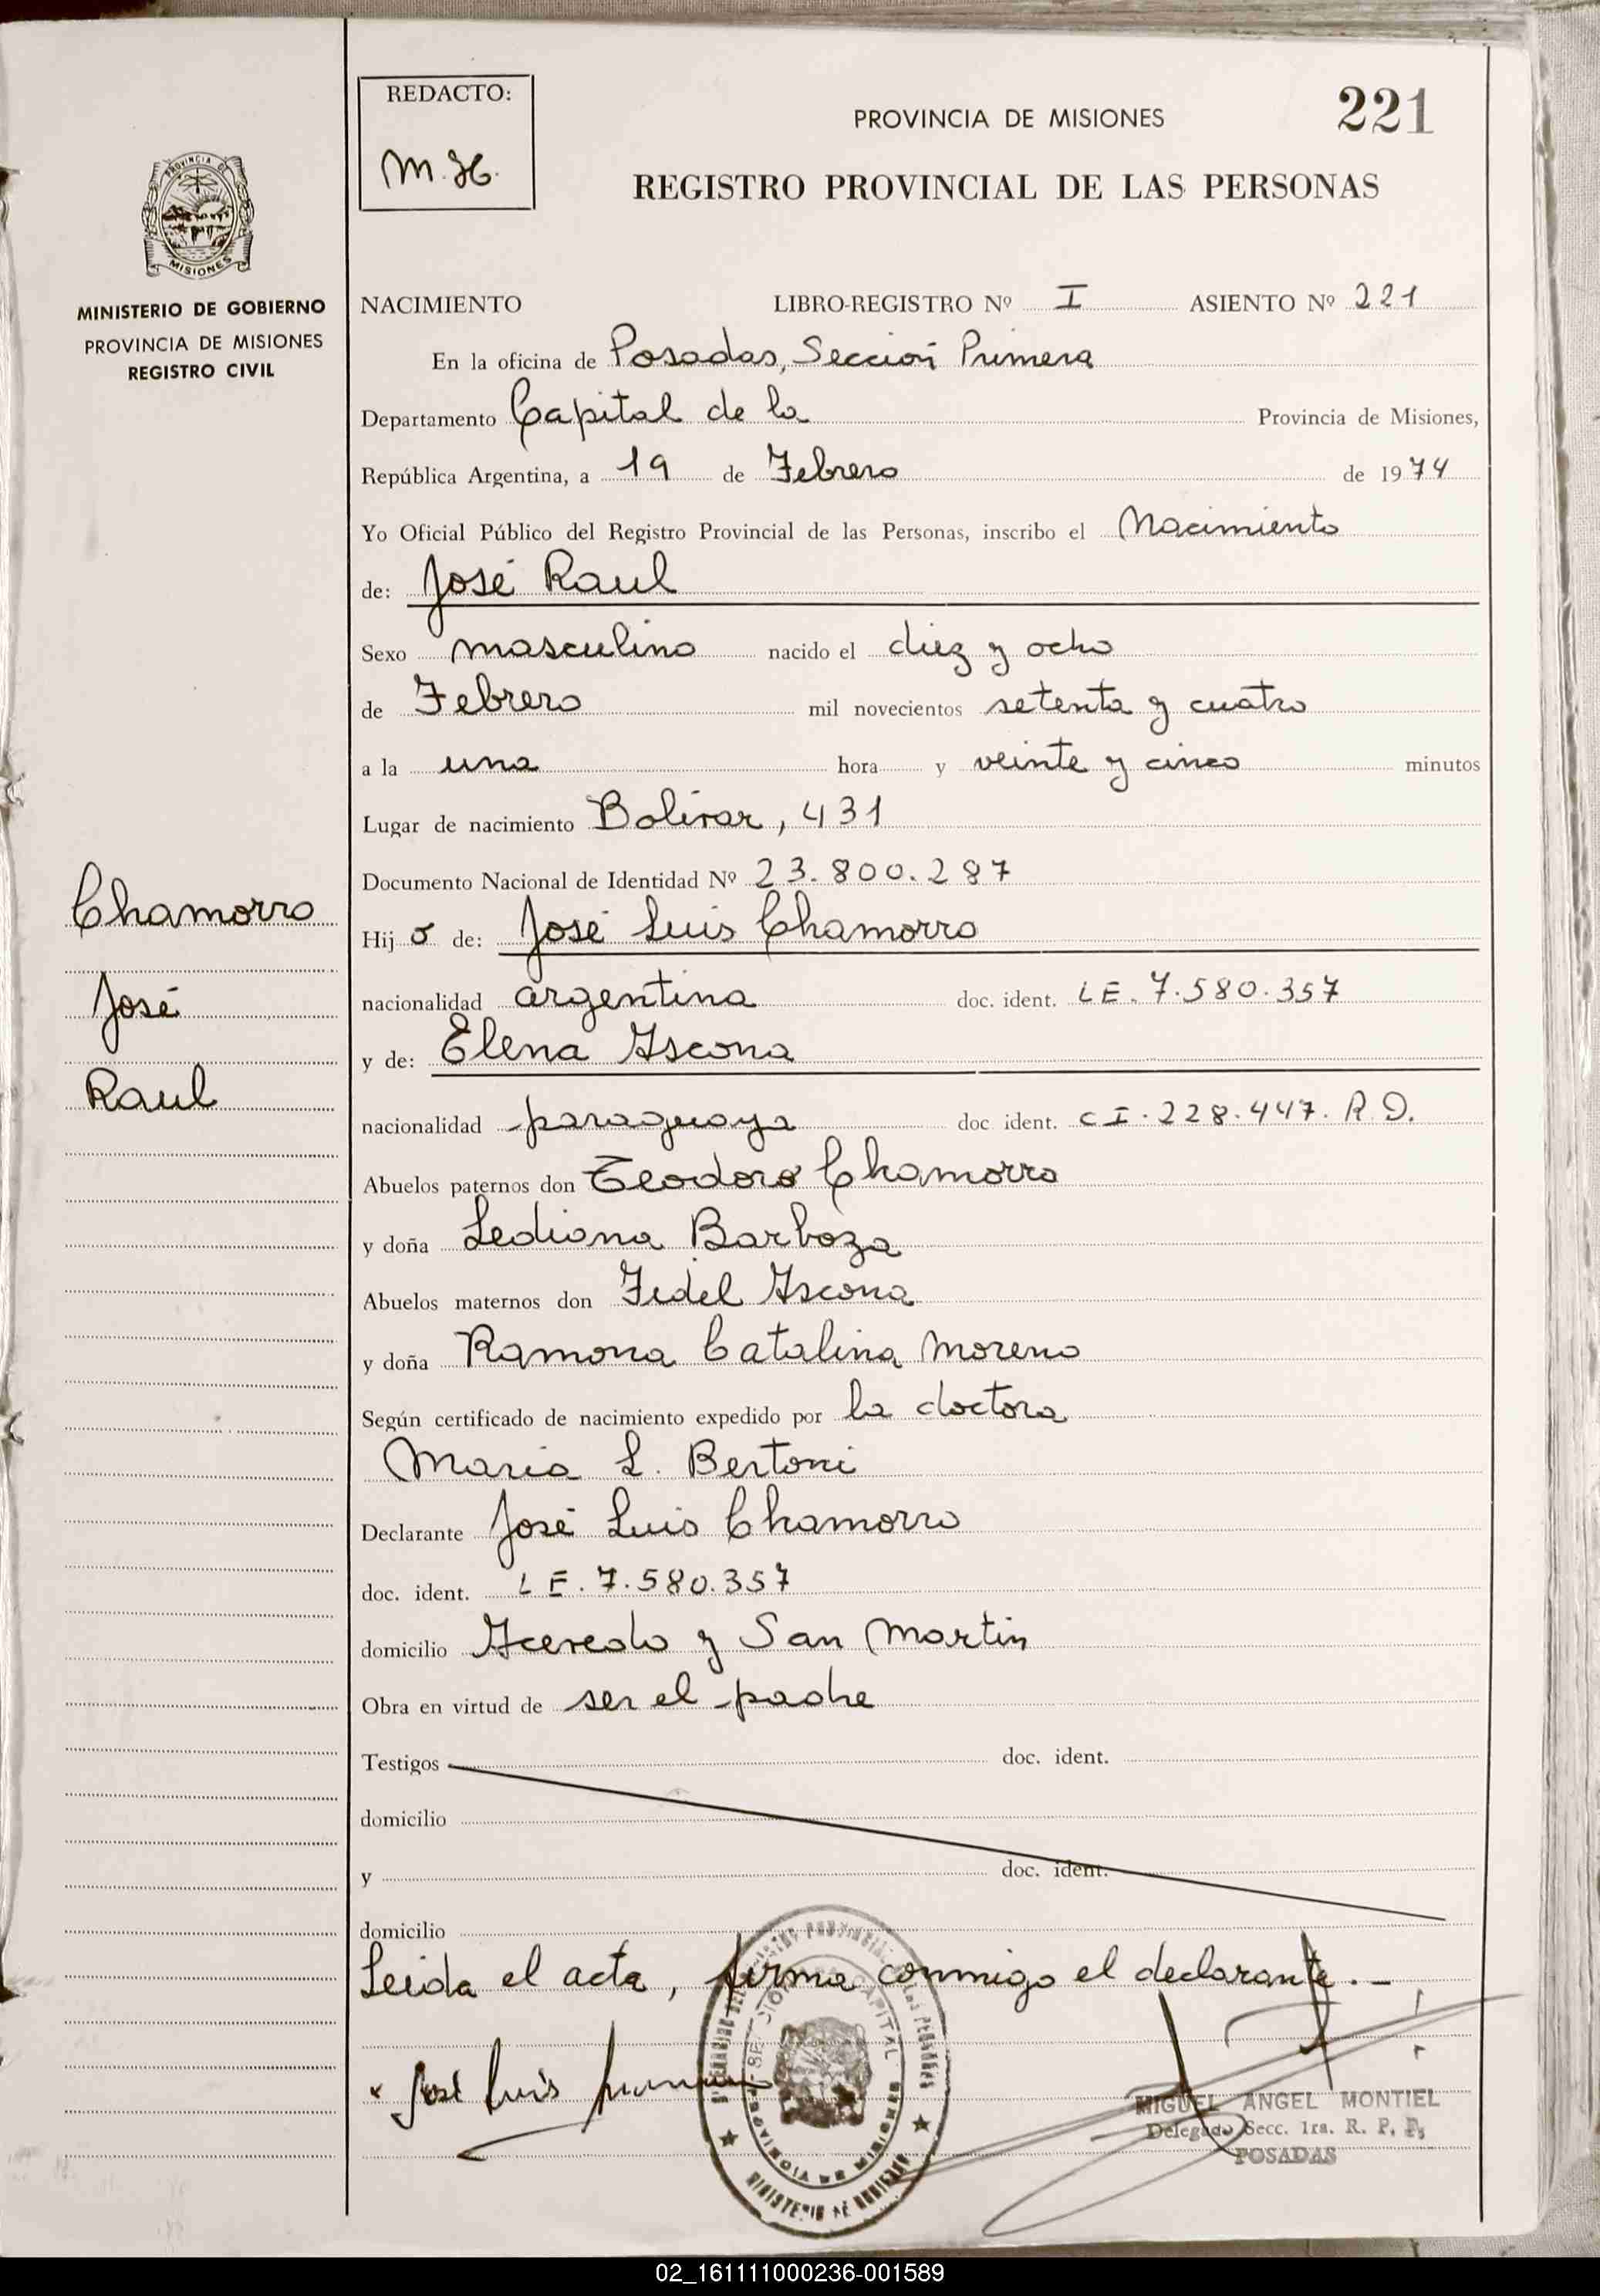 REDACTO:
M.H.
PROVINCIA DE MISIONES
221
REGISTRO PROVINCIAL DE LAS PERSONAS
PROVINCIA DE
MISIONES
MINISTERIO DE GOBIERNO
PROVINCIA DE MISIONES
REGISTRO CIVIL
NACIMIENTO LIBRO-REGISTRO Nº I ASIENTO Nº 221
En la oficina de Posadas, Sección Primera
Departamento Capital de la Provincia de Misiones,
República Argentina, a 19 de Febrero de 1974
Yo Oficial Público del Registro Provincial de las Personas, inscribo el Nacimiento
de: José Raul
Sexo masculino nacido el diez y ocho
de Febrero mil novecientos setenta y cuatro
a la una hora y veinte y cinco minutos
Lugar de nacimiento Bolivar, 431
Documento Nacional de Identidad Nº 23.800.287
Chamorro
José
Raul
Hij o de: José Luis Chamorro
nacionalidad argentina doc. ident. LE. 7.580.357
y de: Elena Ascona
nacionalidad paraguaya doc ident. CI. 228.447. R.D.
Abuelos paternos don Teodoro Chamorro
y doña Lediana Barboza
Abuelos maternos don Fidel Ascona
y doña Ramona Catalina Moreno
Según certificado de nacimiento expedido por la doctora
Maria L. Bertoni
Declarante José Luis Chamorro
doc. ident. LE. 7.580.357
domicilio Acevedo y San Martin
Obra en virtud de ser el padre
Testigos doc. ident.
domicilio
y doc. ident.
domicilio
Leida el acta, firma conmigo el declarante.-
José Luis
MIGUEL ANGEL MONTIEL
Delegado Secc. 1ra. R. P. P.
POSADAS
CAPITAL
PROVINCIA DE MISIONES
MINISTERIO DE GOBIERNO
02_161111000236-001589